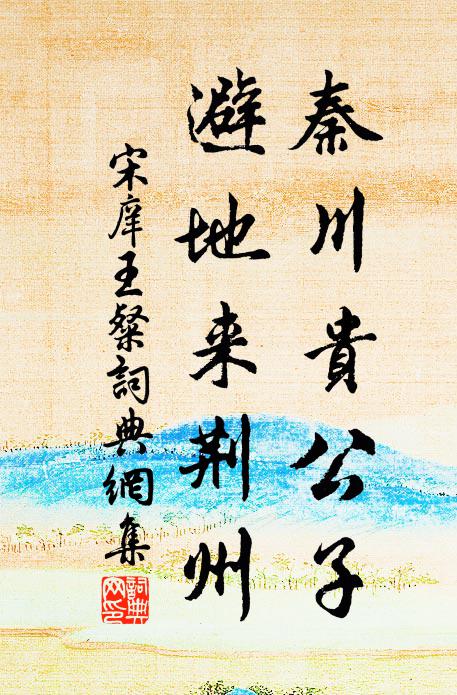 秦川貴公子
避地来荆州
宋庠王粲詞典網集
詞典
网印